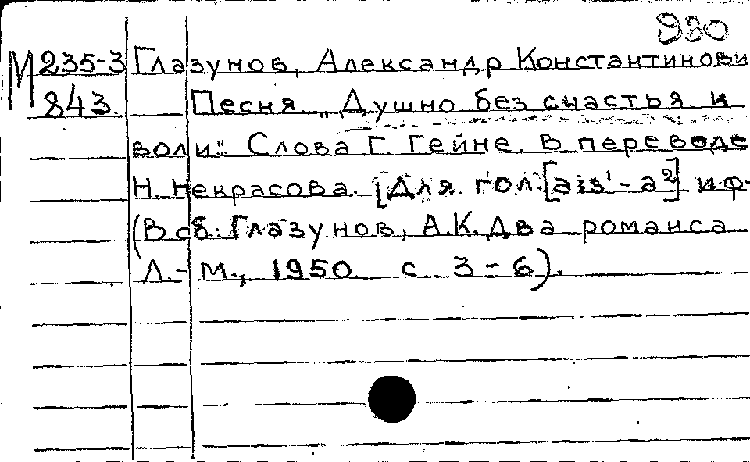 980
М 235-3 Глазунов, Александр Константинови
843 Песня „Душно без счастья и
воли": Слова Г. Гейне. В переводе
Н. Некрасова. [Для гол. [ais¹-a²] и ф-
(В сб.: Глазунов, А.К. Два романса
Л.-М., 1950 с 3-6).